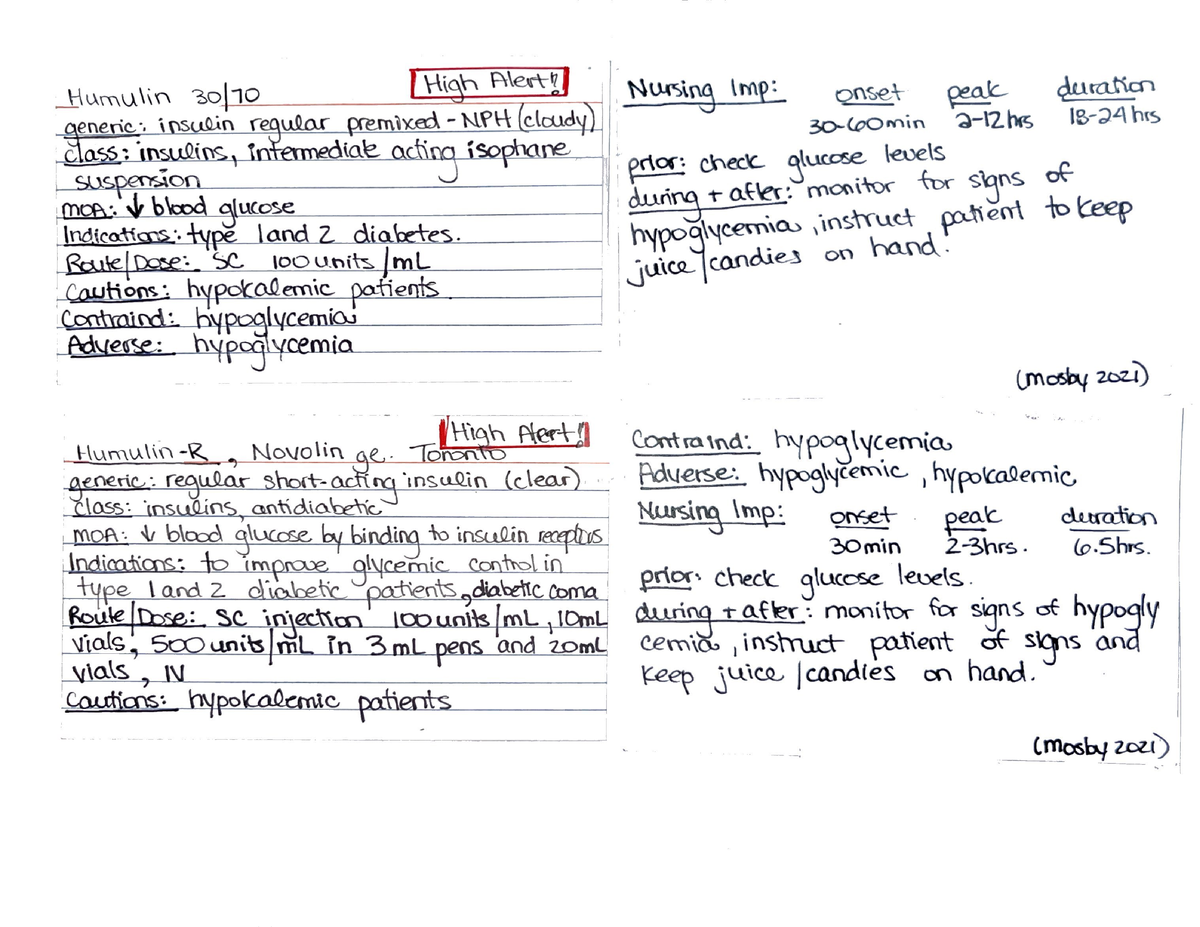 High Alert!!
Humulin 30/70
generic: insulin regular premixed - NPH (cloudy)
class: insulins, intermediate acting isophane
suspension
MOA: ↓ blood glucose
Indications: type 1 and 2 diabetes.
Route/Dose: SC 100 units/mL
Cautions: hypokalemic patients
Contraind: hypoglycemia
Adverse: hypoglycemia
Nursing Imp: onset peak duration
30-60min 2-12hrs 18-24hrs
prior: check glucose levels
during + after: monitor for signs of
hypoglycemia, instruct patient to keep
juice/candies on hand.
(mosby 2021)
High Alert!!
Humulin-R, Novolin ge. Toronto
generic: regular short-acting insulin (clear)
class: insulins, antidiabetic
MOA: ↓ blood glucose by binding to insulin receptors
Indications: to improve glycemic control in
type 1 and 2 diabetic patients, diabetic coma
Route/Dose: SC injection 100 units/mL, 10mL
vials, 500 units/mL in 3 mL pens and 20mL
vials, IV
Cautions: hypokalemic patients
Contraind: hypoglycemia
Adverse: hypoglycemic, hypokalemic
Nursing Imp: onset peak duration
30min 2-3hrs. 6.5hrs.
prior: check glucose levels.
during + after: monitor for signs of hypogly
cemia, instruct patient of signs and
keep juice/candies on hand.
(mosby 2021)